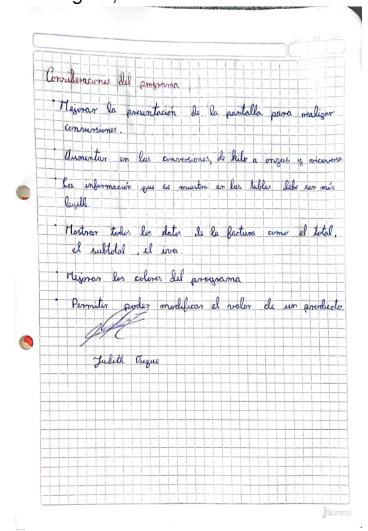 Consideraciones del programa
· Mejorar la presentación de la pantalla para realizar
conversiones.
· Aumentar en las conversiones, de kilo a onzas y viceversa
· La información que se muestra en las tablas debe ser más
legible
· Mostrar todos los datos de la factura como el total,
el subtotal, el iva.
· Mejorar los colores del programa
· Permitir poder modificar el valor de un producto.
Judith Duque
Norma